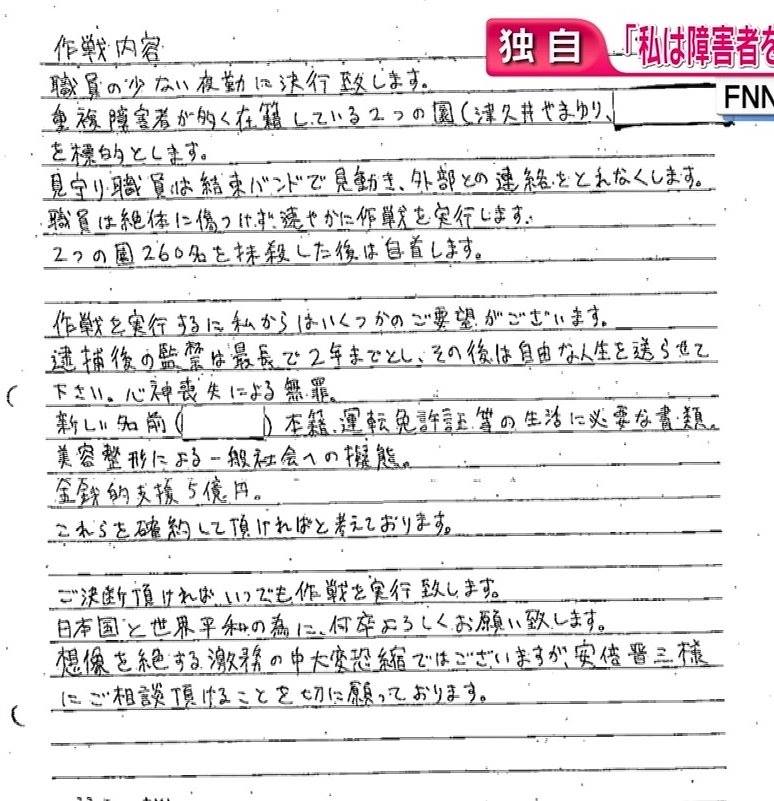 独自
「私は障害者を
FNN
作戦内容
職員の少ない夜勤に決行致します。
重複障害者が多く在籍している2つの園(津久井やまゆり、
を標的とします。
見守り職員は結束バンドで見動き、外部との連絡をとれなくします。
職員は絶体に傷つけず、速やかに作戦を実行します。
2つの園260名を抹殺した後は自首します。
作戦を実行するに私からはいくつかのご要望がございます。
逮捕後の監禁は最長で2年までとし、その後は自由な人生を送らせて
下さい。心神喪失による無罪。
新しい名前( )本籍、運転免許証等の生活に必要な書類。
美容整形による一般社会への擬態。
金銭的支援5億円。
これらを確約して頂ければと考えております。
ご決断頂ければ、いつでも作戦を実行致します。
日本国と世界平和の為に、何卒よろしくお願い致します。
想像を絶する激務の中大変恐縮ではございますが、安倍晋三様
にご相談頂けることを切に願っております。